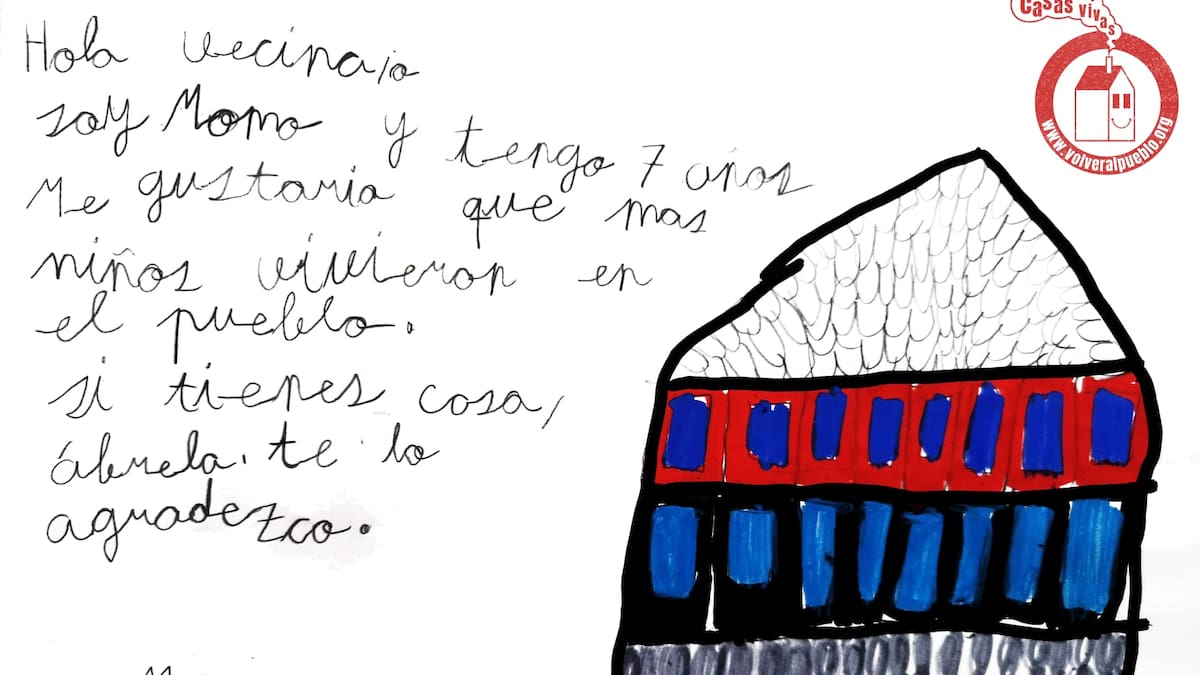 Hola vecina/o
soy Momo y tengo 7 años
Me gustaria que mas
niños vivieron en
el pueblo.
si tienes casa,
ábrela. te lo
agradezco.
Casas vivas
www.volveralpueblo.org